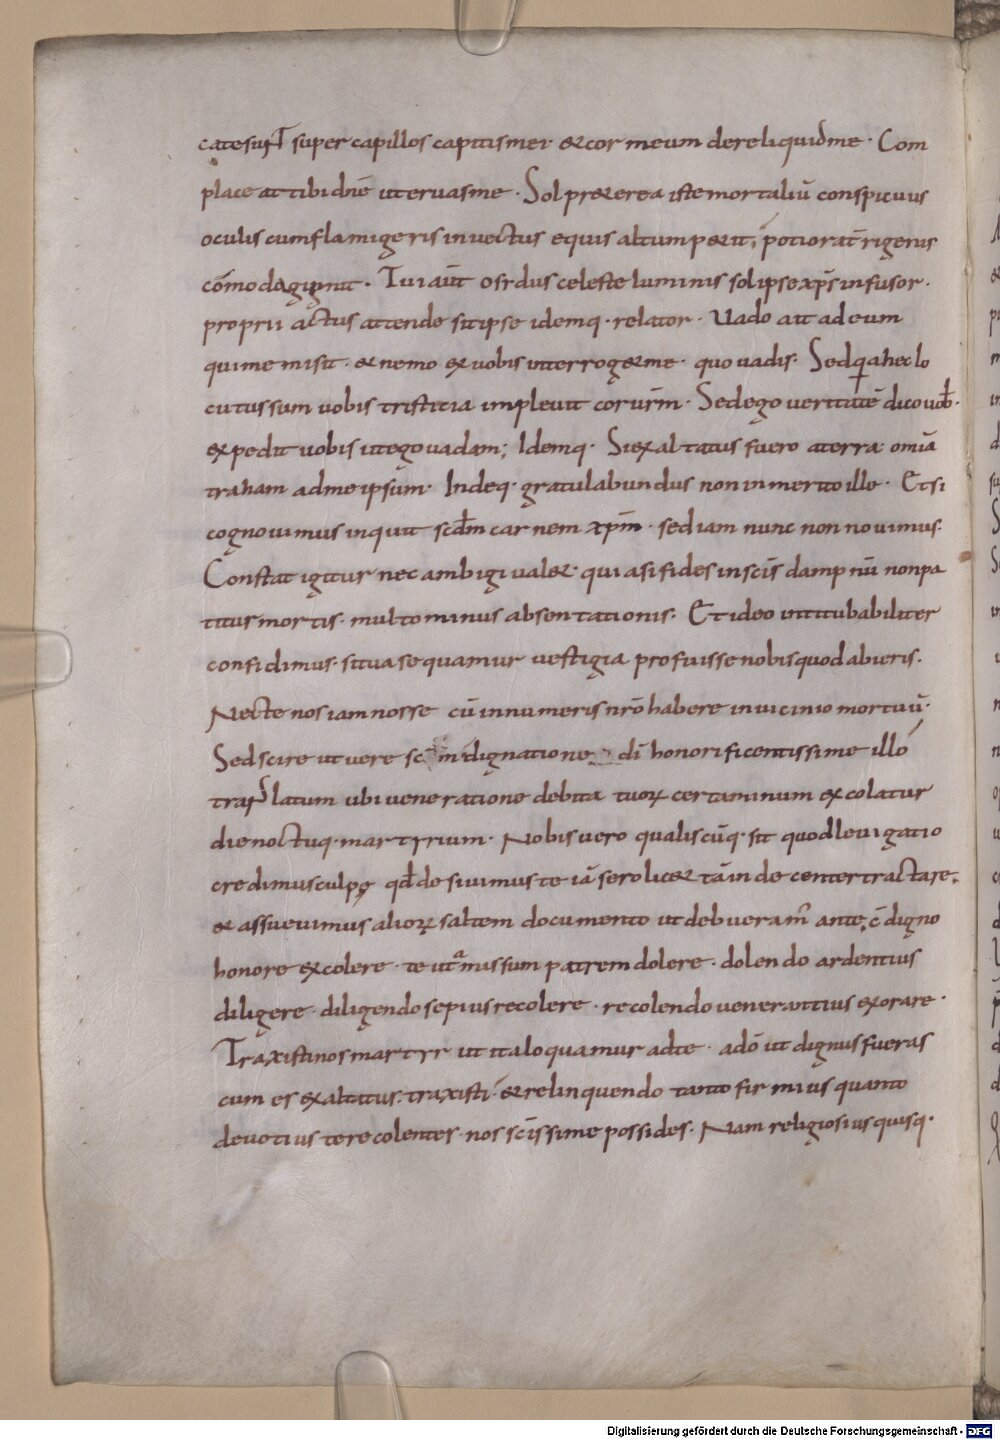 cate sunt super capillos capitis mei· & cor meum dereliquid me· Com
placeat tibi dnē ut eruas me· Sol pr&erea iste mortaliū conspicuus
oculis cum flamigeris invectus equis altum p&it; potiora t̄rigenis
cōmoda gignit· Tui aūt osrdus celeste luminis sol ipse xp̄s infusor·
proprii actus attende sit ipse idemq· relator· Uado ait ad eum
qui me misit· & nemo ex vobis interrog& me· quo vadis· Sed q̄a hec lo
cutus sum vobis tristicia implevit cor ūrm· Sed ego veritatē dico vob̄·
expedit vobis ut ego vadam; Idemq· Si exaltatus fuero a terra omīa
traham ad me ipsum· Indeq· gratulabundus non inmerito ille· Et si
cognovimus inquit scdm̄ carnem xpm̄· sed iam nunc non novimus·
Constat igitur nec ambigi val&· quia si fides in scīs dampnū non pa
titur mortis· multo minus absentationis· Et ideo intitubabiliter
confidimus· si tua sequamur vestigia profuisse nobis quod abieris·
Nec te nos iam nosse cū innumeris nr̄o habere in vicinio mortuū·
Sed scire ut vere sc̄m dignatione di honorificentissime illo
translatum ubi veneratione debita tuoꝝ certaminum excolatur
die noctuq· martyrium· Nobis vero qualiscūq· sit quod levigatio
credimus culpę qd̄ desivimus te iā sero lic& tā indecenter tractare·
& assuevimus alioꝝ saltem documento ut debueram̄ ante, c̄digno
honore excolere· te ut amissum patrem dolere· dolendo ardentius
diligere· diligendo sepius recolere· recolendo venerantius exorare·
Traxisti nos martyr ut ita loquamur ad te· ad ō ut dignus fueras
cum es exaltatus· traxisti· & relinquendo tanto firmius quanto
devotius te recolenter· nos scīssime possides· Nam religiosius quisq·
Digitalisierung gefördert durch die Deutsche Forschungsgemeinschaft - DFG